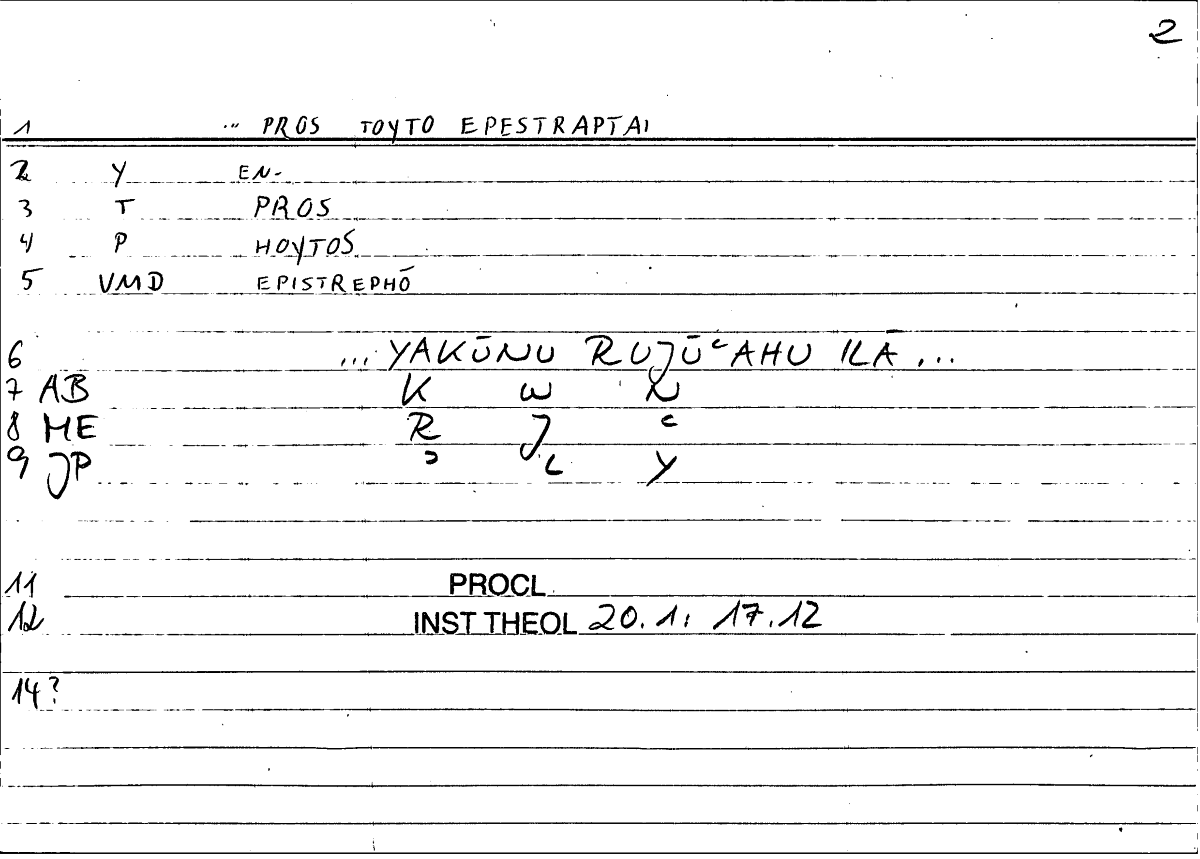 2
1 ... PROS TOYTO EPESTRAPTAI
2 Y EN-
3 T PROS
4 P HOYTOS
5 VMD EPISTREPHŌ
6 ... YAKŪNU RUJŪʿAHU ILĀ ...
7 AB K W N
8 ME R J ʿ
9 JP ʾ L Y
11 PROCL
12 INST THEOL 20.1: 17.12
14?